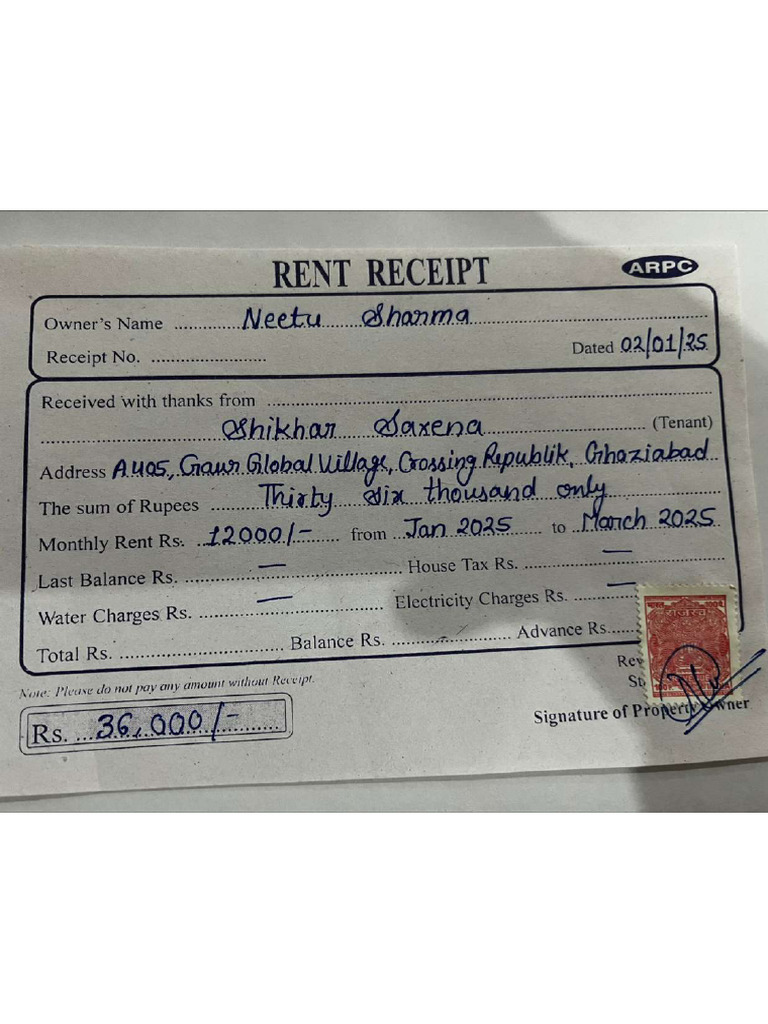 RENT RECEIPT ARPC
Owner's Name Neetu Sharma
Receipt No. Dated 02/01/25
Received with thanks from
Shikhar Saxena (Tenant)
Address A405, Gaur Global Village, Crossing Republik, Ghaziabad
The sum of Rupees Thirty Six thousand only
Monthly Rent Rs. 12000/- from Jan 2025 to March 2025
Last Balance Rs. — House Tax Rs. —
Water Charges Rs. — Electricity Charges Rs. —
Total Rs. Balance Rs. Advance Rs.
Note: Please do not pay any amount without Receipt.
Rs. 36,000/-
Signature of Property Owner
भारत
राजस्व